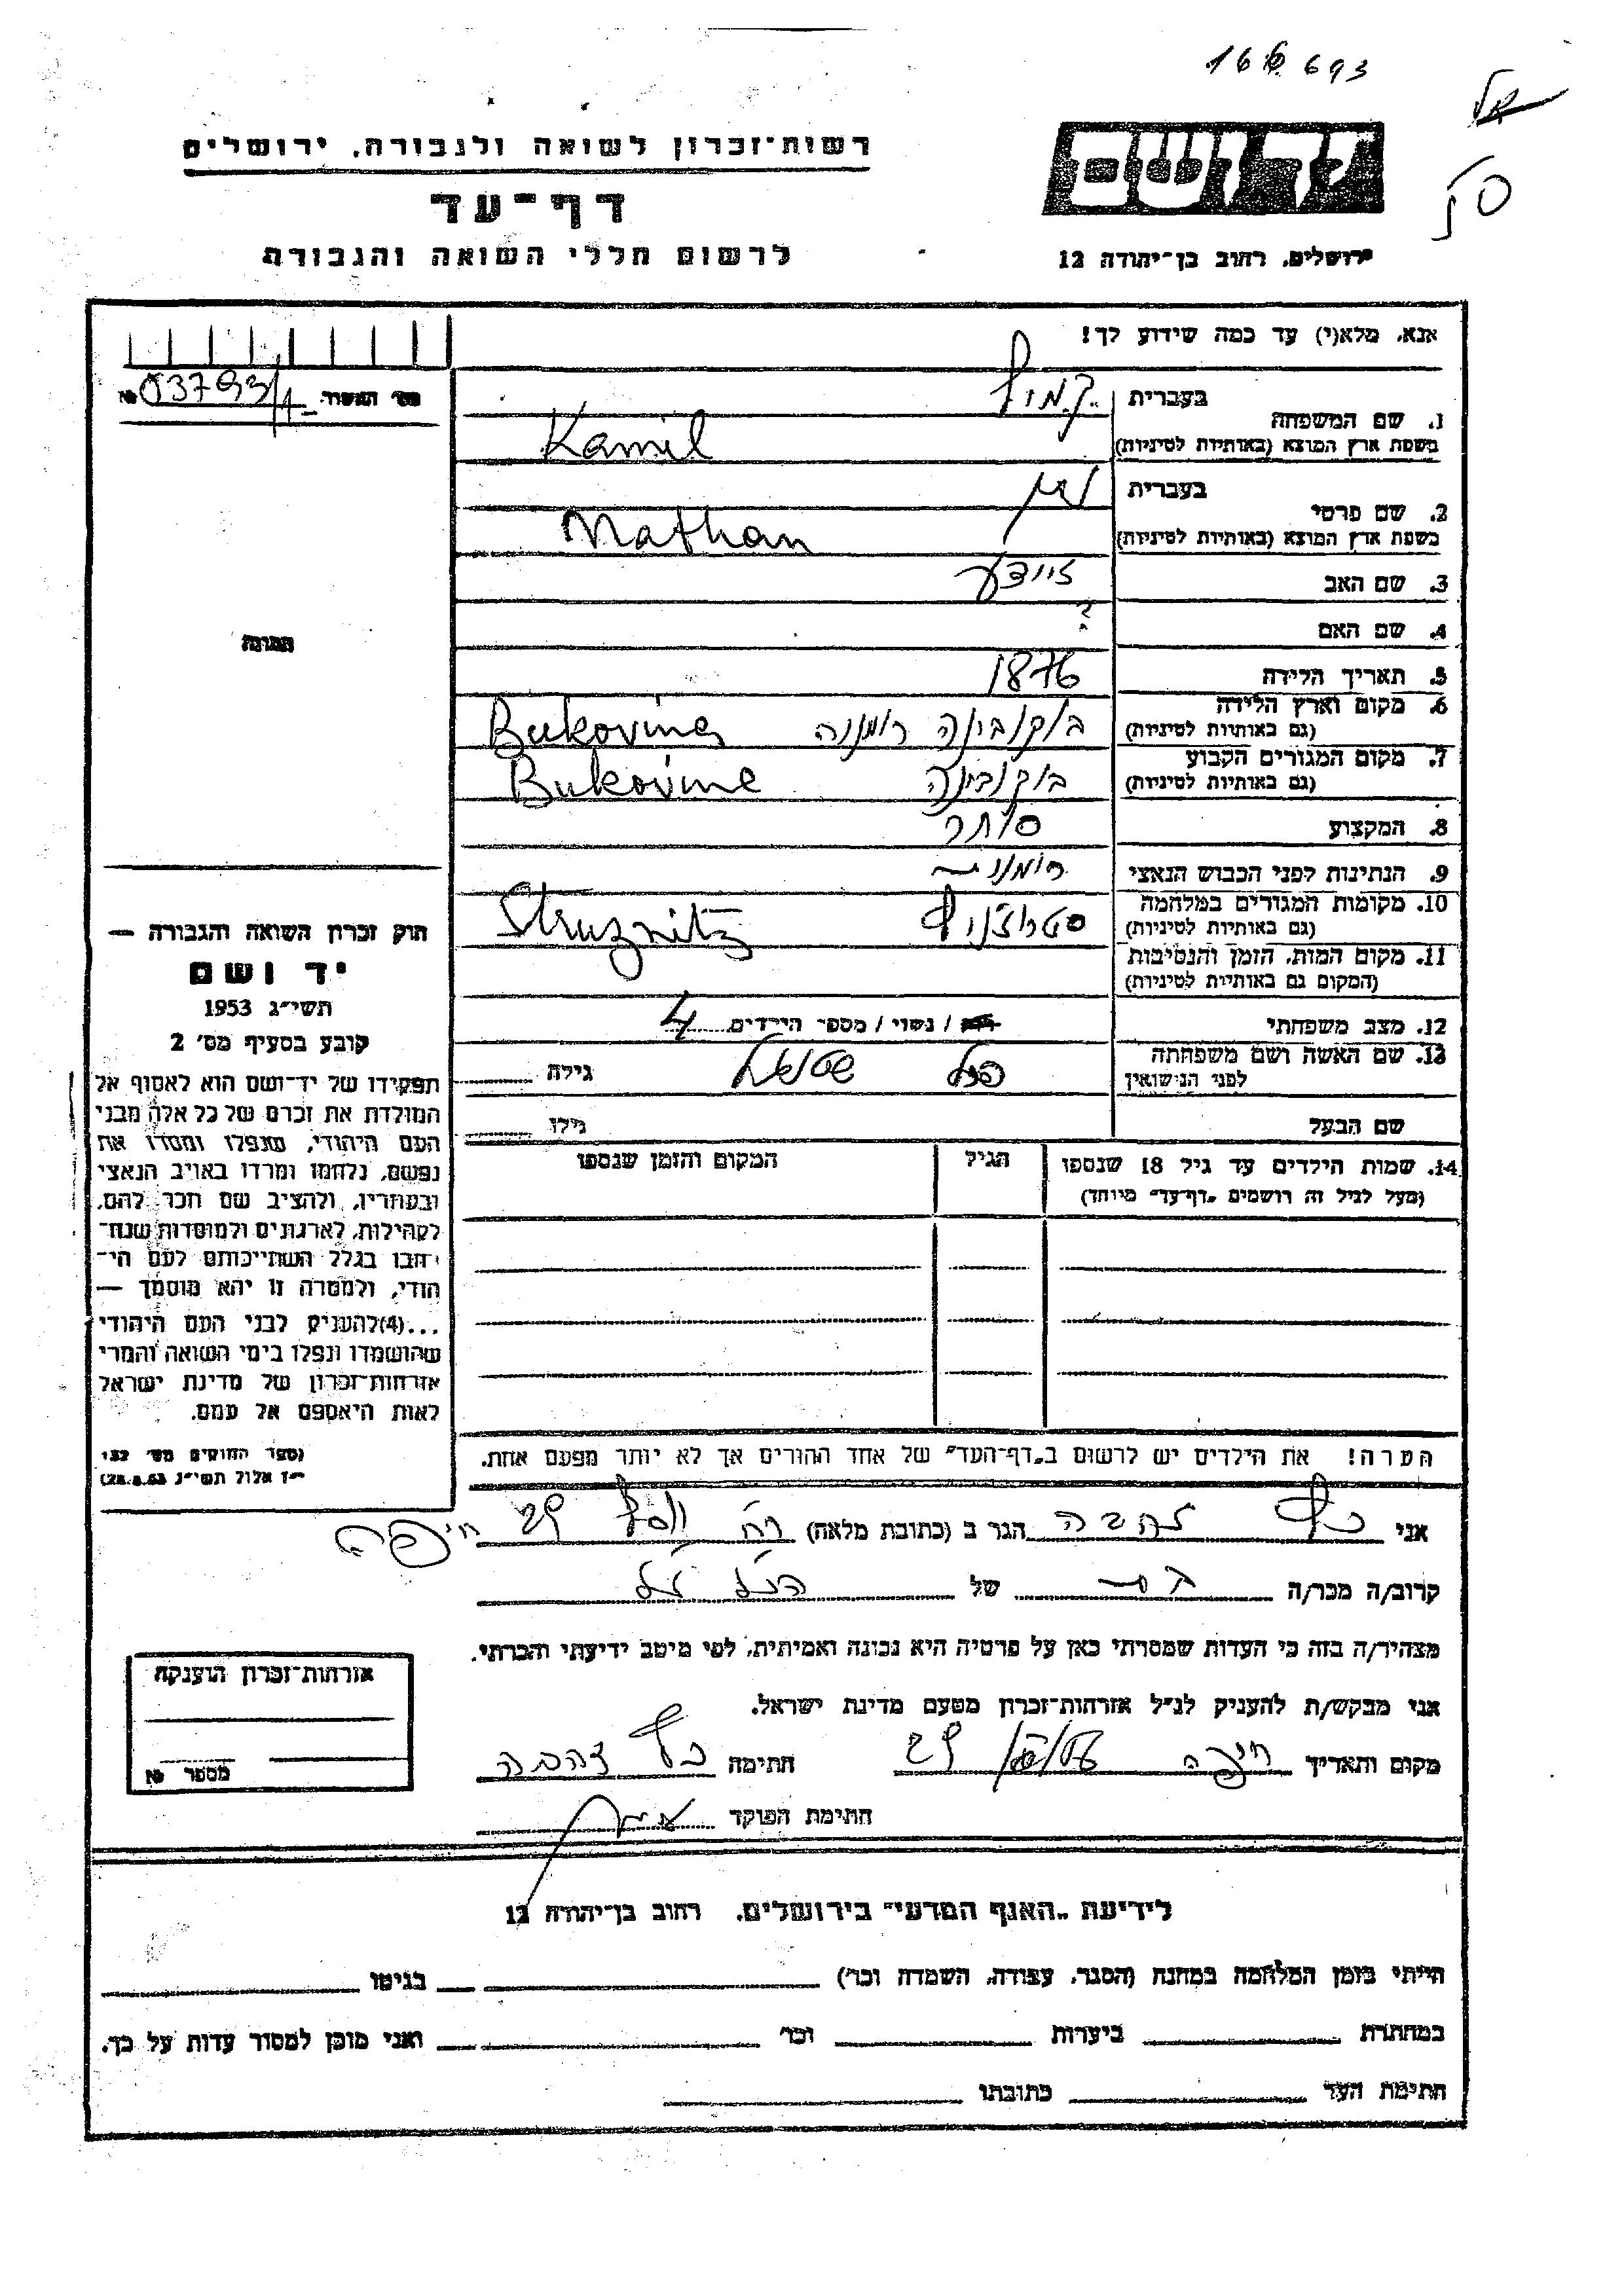 16 6 693
רשות־זכרון לשואה ולגבורה, ירושלים
דף־עד
לרשום חללי השואה והגבורה
ידושם
ירושלים, רחוב בן־יהודה 12
אנא, מלא(י) עד כמה שידוע לך!
מס׳ המשור № 03793/1
1. שם המשפחה
בעברית
בשפת ארץ המוצא (באותיות לטיניות) Kamil
2. שם פרטי
בעברית נתן
בשפת ארץ המוצא (באותיות לטיניות) Nathan
3. שם האב זיידע
4. שם האם ?
5. תאריך הלידה 1876
6. מקום וארץ הלידה
(גם באותיות לטיניות) בוקובינה רומניה Bukovina
7. מקום המגורים הקבוע
(גם באותיות לטיניות) בוקובינה Bukovine
8. המקצוע סוחר
9. הנתינות לפני הכבוש הנאצי רומנית
10. מקומות המגורים במלחמה
(גם באותיות לטיניות) Struznitz
11. מקום המות, הזמן והנסיבות
(המקום גם באותיות לטיניות)
12. מצב משפחתי רווק / נשוי / מספר הילדים 4
13. שם האשה ושם משפחתה
לפני הנישואין גילה
שם הבעל גילו
14. שמות הילדים עד גיל 18 שנספו
(מעל לגיל זה רושמים „דף־עד״ מיוחד)
הגיל
המקום והזמן שנספו
התמונה
חוק זכרון השואה והגבורה —
יד ושם
תשי״ג 1953
קובע בסעיף מס׳ 2
תפקידו של יד־ושם הוא לאסוף אל
המולדת את זכרם של כל אלה מבני
העם היהודי, שנפלו ומסרו את
נפשם, נלחמו ומרדו באויב הנאצי
ובעוזריו, ולהציב שם וזכר להם,
לקהילות, לארגונים ולמוסדות שנח־
רבו בגלל השתייכותם לעם הי־
הודי, ולמטרה זו יהא מוסמך —
...(4) להעניק לבני העם היהודי
שהושמדו ונפלו בימי השואה והמרי
אזרחות־זכרון של מדינת ישראל
לאות היאספם אל עמם.
(ספר החוקים מס׳ 132
י״ז אלול תשי״ג 28.8.53)
הערה! את הילדים יש לרשום ב„דף־העד״ של אחד ההורים אך לא יותר מפעם אחת.
אני זהבה הגר ב (כתובת מלאה) רח׳ 29 חיפה
קרוב/ה מכר/ה של הנ״ל
מצהיר/ה בזה כי העדות שמסרתי כאן על פרטיה היא נכונה ואמיתית, לפי מיטב ידיעתי והכרתי.
אני מבקש/ת להעניק לנ״ל אזרחות־זכרון מטעם מדינת ישראל.
מקום ותאריך חיפה חתימה זהבה
חתימת הפוקד
אזרחות־זכרון הוענקה
מספר №
לידיעת „האגף המדעי״ בירושלים, רחוב בן־יהודה 12
הייתי בזמן המלחמה במחנה (הסגר, עבודה, השמדה וכו׳) בגיטו
במחתרת ביערות וכו׳ ואני מוכן למסור עדות על כך.
חתימת העד כתובתו